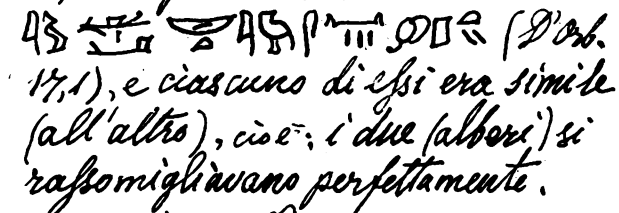 (D'Orb.
17,1), e ciascuno di essi era simile
(all'altro), cioè: i due (alberi) si
rassomigliavano perfettamente.